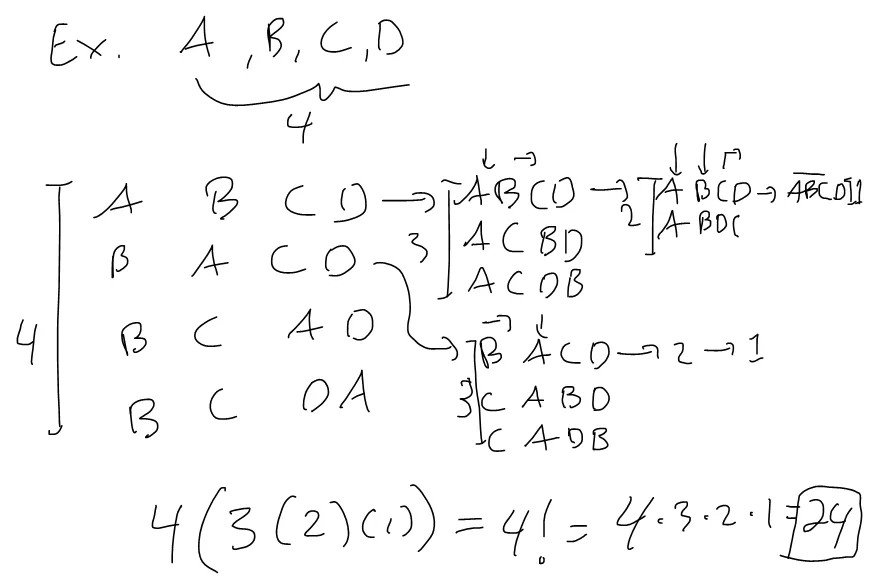 Ex. A, B, C, D
4
4
A B C D → 3 A B C D → 2 A B C D → ABCD 1
A C B D
A B D C
A C D B
B A C D → 3 B A C D → 2 → 1
C A B D
C A D B
B C A D
B C D A
4(3(2)(1)) = 4! = 4·3·2·1 = 24